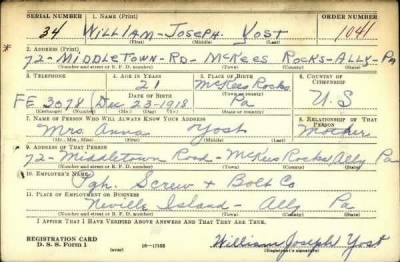 SERIAL NUMBER 1. NAME (Print) ORDER NUMBER
34 WILLIAM - JOSEPH - YOST 1041
(First) (Middle) (Last)
2. ADDRESS (Print)
* 72 - MIDDLETOWN - RD - MCKEES ROCKS - ALLY - PA
(Number and street or R. F. D. number) (Town) (County) (State)
3. TELEPHONE 4. AGE IN YEARS 5. PLACE OF BIRTH 6. COUNTRY OF CITIZENSHIP
21 McKees Rocks
FE 3078 Dec 23-1918 Pa U.S
7. NAME OF PERSON WHO WILL ALWAYS KNOW YOUR ADDRESS 8. RELATIONSHIP OF THAT PERSON
Mrs. Anna Yost Mother
(Mr., Mrs., Miss) (First) (Middle) (Last)
9. ADDRESS OF THAT PERSON
72 - Middletown Road - McKees Rocks Ally Pa
(Number and street or R. F. D. number) (Town) (County) (State)
10. EMPLOYER'S NAME
Pgh. Screw + Bolt Co
11. PLACE OF EMPLOYMENT OR BUSINESS
Neville Island - Ally Pa
(Number and street or R. F. D. number) (Town) (County) (State)
I AFFIRM THAT I HAVE VERIFIED ABOVE ANSWERS AND THAT THEY ARE TRUE.
REGISTRATION CARD
D. S. S. Form 1 (over) 16-17105 William Joseph Yost